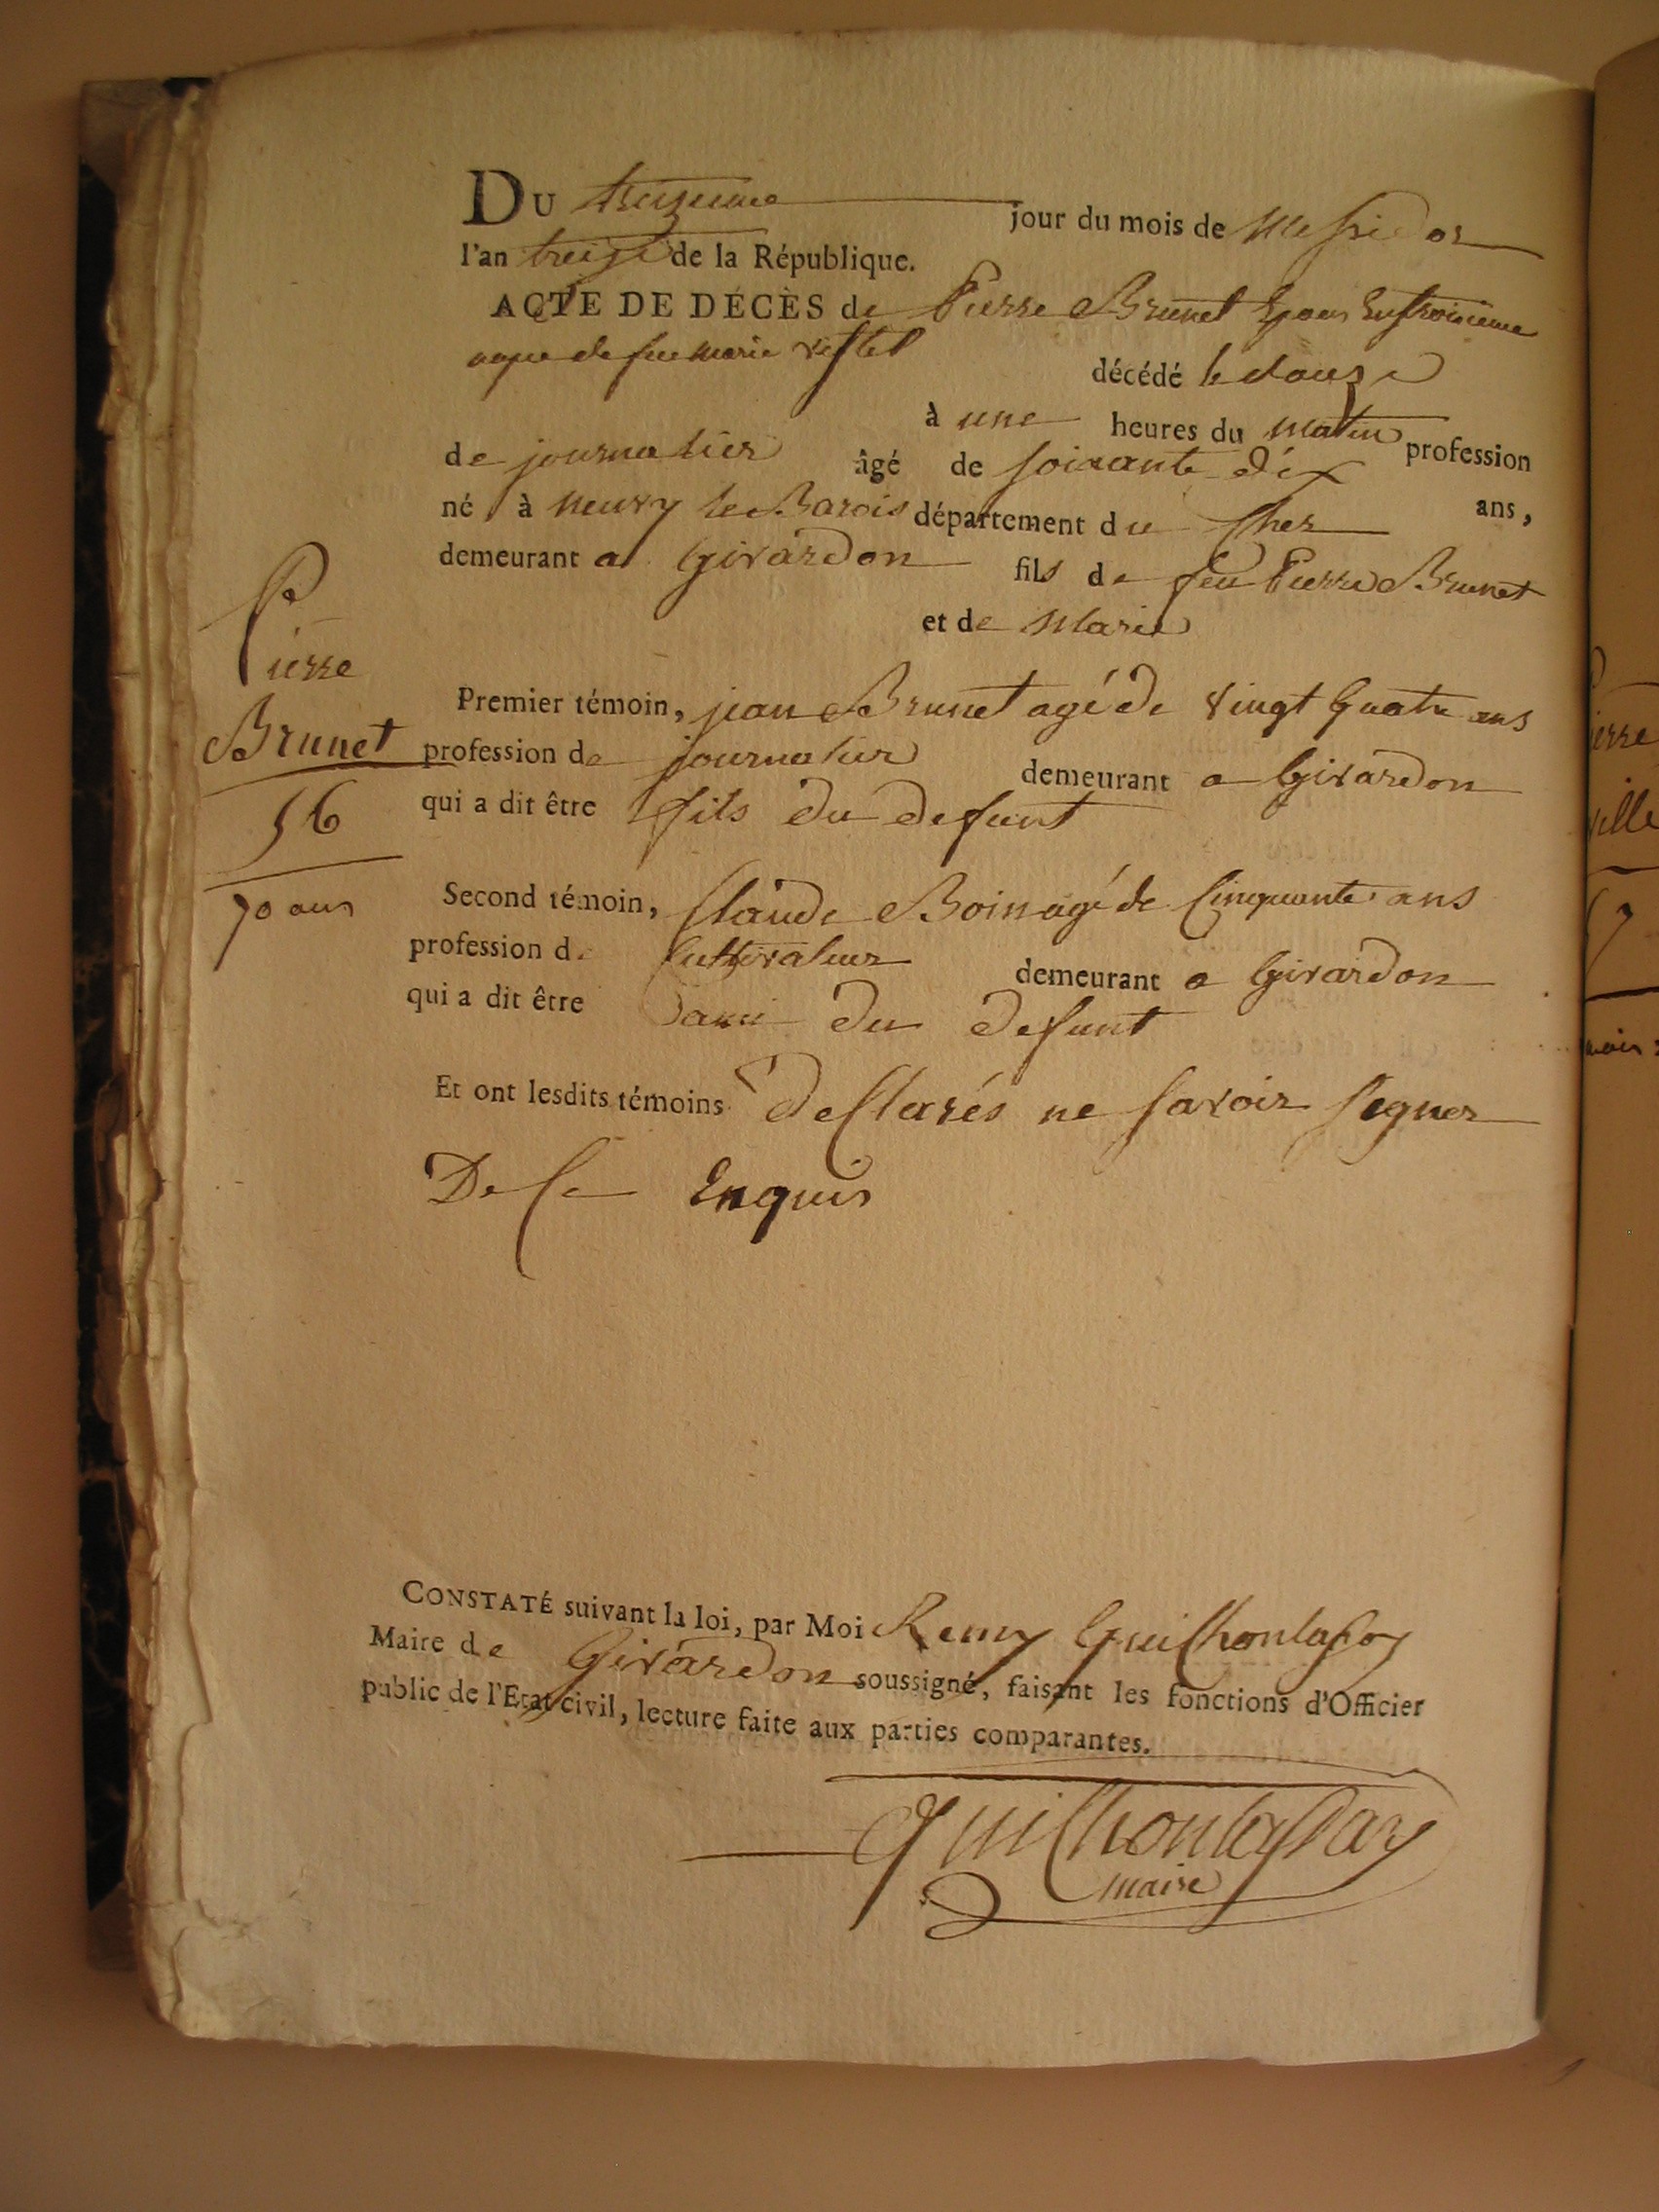 DU treizieme jour du mois de Messidor
l'an treize de la République.
ACTE DE DÉCÈS de Pierre Brunet Epoux en troisieme
nopce de feue marie
décédé le douze
à une heures du matin profession
de journalier âgé de soixante dix ans,
né à neuvy le Barois département du Cher
demeurant a Givardon fils de feu Pierre Brunet
et de Marie
Pierre
Brunet
56
70 ans
Premier témoin, jean Brunet agé de vingt quatre ans
profession de journalier demeurant a Givardon
qui a dit être fils du defunt
Second témoin, Claude Boin agé de Cinquante ans
profession de Cultivateur demeurant a Givardon
qui a dit être ami du defunt
Et ont lesdits témoins declarés ne savoir signer
De ce Enquis
CONSTATÉ suivant la loi, par Moi Remy
Maire de Givardon soussigné, faisant les fonctions d'Officier
public de l'Etat civil, lecture faite aux parties comparantes.
maire